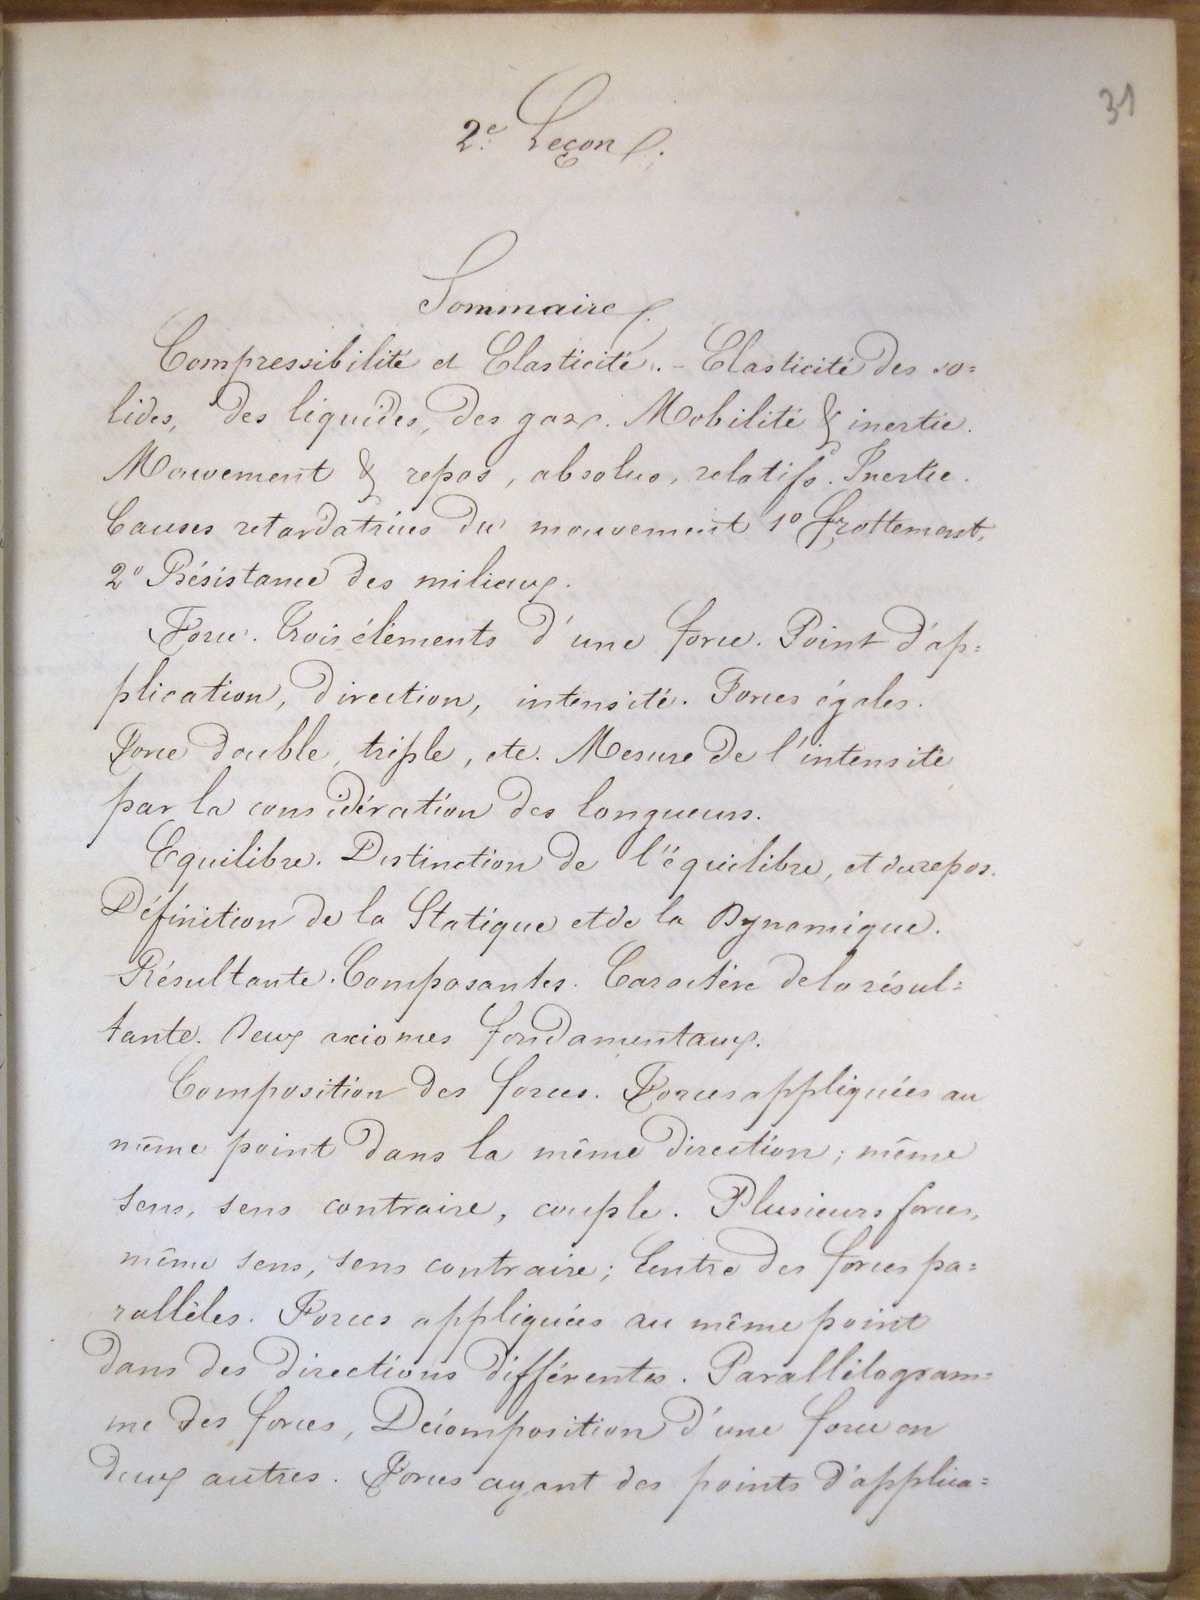 31
2.e Leçon.
Sommaire.
Compressibilité et Elasticité. - Elasticité des so=
lides, des liquides, des gaz. Mobilité & inertie.
Mouvement & repos, absolus, relatifs. Inertie.
Causes retardatrices du mouvement 1o frottement,
2o Résistance des milieux.
Force. Trois éléments d'une force. Point d'ap=
plication, direction, intensité. Forces égales.
Force double, triple, etc. Mesure de l'intensité
par la considération des longueurs.
Equilibre. Distinction de l'équilibre, et du repos.
Définition de la Statique et de la Dynamique.
Résultante. Composantes. Caractère de la résul=
tante. Deux axiomes fondamentaux.
Composition des forces. Forces appliquées au
même point dans la même direction; même
sens, sens contraire, couple. Plusieurs forces,
même sens, sens contraire; Centre des forces pa=
rallèles. Forces appliquées au même point
dans des directions différentes. Parallélogram=
me des forces, Décomposition d'une force en
deux autres. Forces ayant des points d'applica=